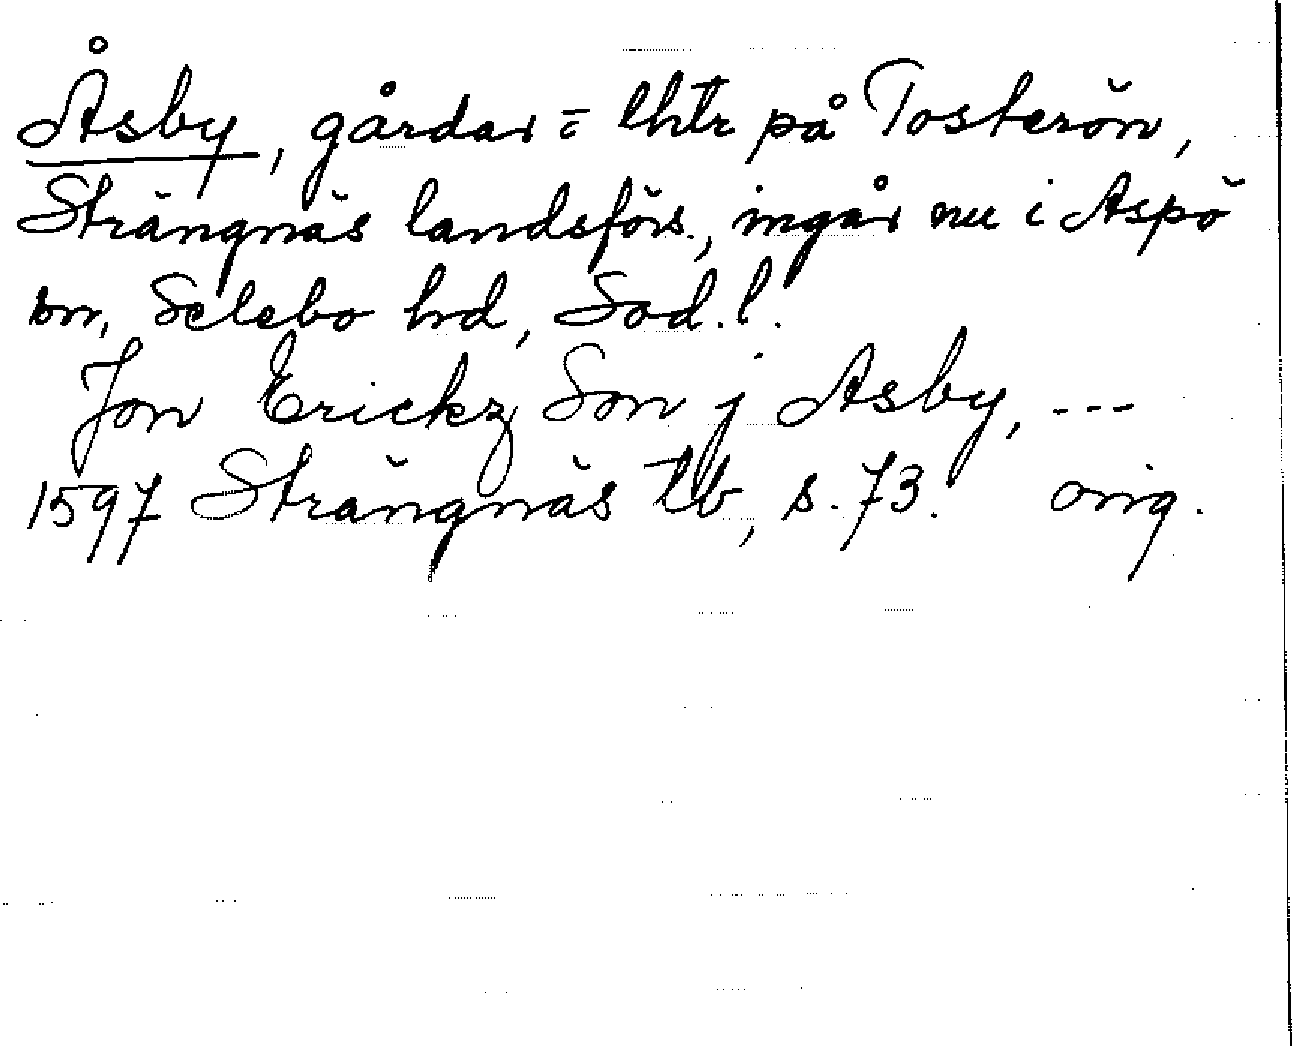 Åsby, gårdar = lhtr på Tosterön,
Strängnäs landsförs., ingår nu i Aspö
sn, Selebo hd, Söd. l.
Jon Erickz Son j Asby, ---
1597 Strängnäs tb, s. 73. orig.